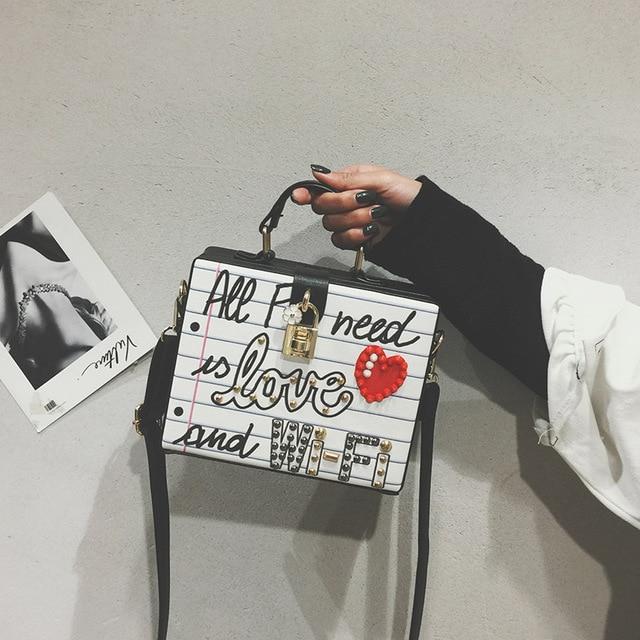 All I need
is love
and WI-FI